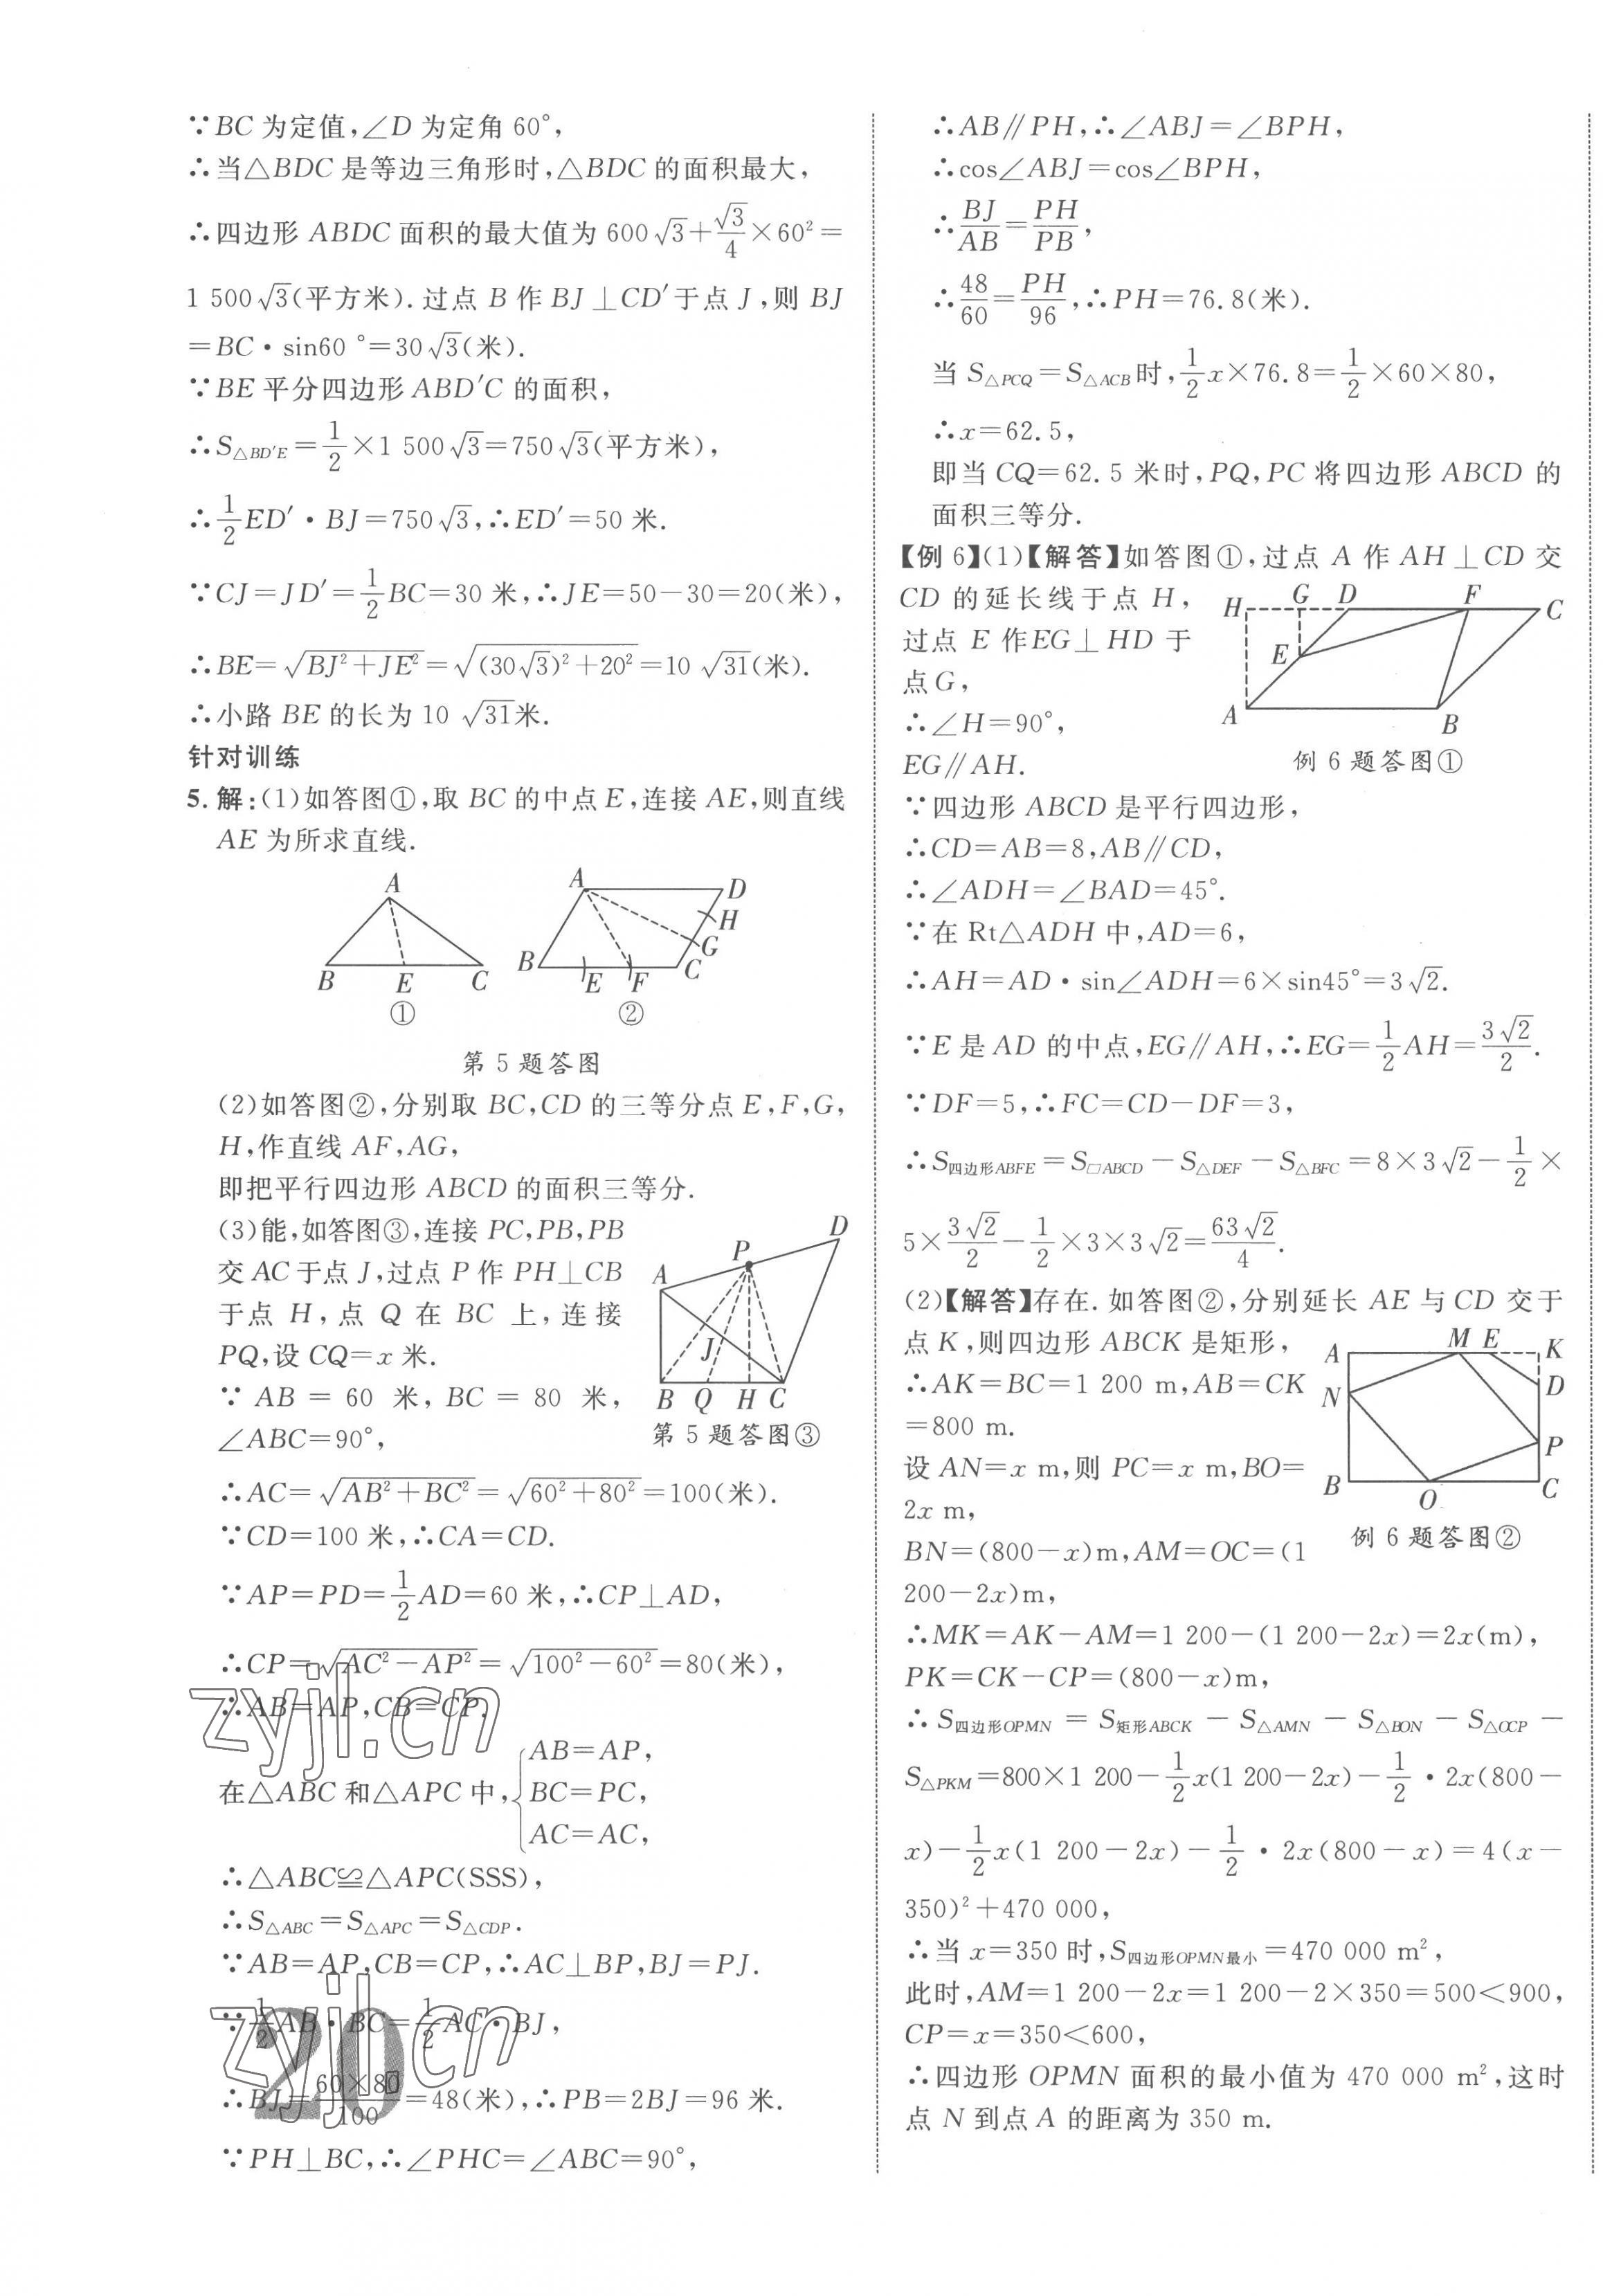 ∵BC为定值,∠D为定角60°,
∴当△BDC是等边三角形时,△BDC的面积最大,
∴四边形ABDC面积的最大值为600√3+√3/4×60²=
1 500√3(平方米).过点B作BJ⊥CD′于点J,则BJ
=BC·sin60°=30√3(米).
∵BE平分四边形ABD′C的面积,
∴S△BD′E=1/2×1 500√3=750√3(平方米),
∴1/2ED′·BJ=750√3,∴ED′=50米.
∵CJ=JD′=1/2BC=30米,∴JE=50-30=20(米),
∴BE=√(BJ²+JE²)=√((30√3)²+20²)=10√31(米).
∴小路BE的长为10√31米.
针对训练
5.解:(1)如答图①,取BC的中点E,连接AE,则直线
AE为所求直线.
A
B E C
①
A D
H
G
B E F C
②
第5题答图
(2)如答图②,分别取BC,CD的三等分点E,F,G,
H,作直线AF,AG,
即把平行四边形ABCD的面积三等分.
(3)能,如答图③,连接PC,PB,PB
交AC于点J,过点P作PH⊥CB
于点H,点Q在BC上,连接
PQ,设CQ=x米.
∵AB=60米,BC=80米,
∠ABC=90°,
D
P
A
J
B Q H C
第5题答图③
∴AC=√(AB²+BC²)=√(60²+80²)=100(米).
∵CD=100米,∴CA=CD.
∵AP=PD=1/2AD=60米,∴CP⊥AD,
∴CP=√(AC²-AP²)=√(100²-60²)=80(米),
∴AB=AP,CB=CP.
zyjl.cn
在△ABC和△APC中,{AB=AP,
BC=PC,
AC=AC,
∴△ABC≌△APC(SSS),
∴S△ABC=S△APC=S△CDP.
∵AB=AP,CB=CP,∴AC⊥BP,BJ=PJ.
∵1/2AB·BC=1/2AC·BJ,
zyjl.cn
20
∴BJ=60×80/100=48(米),∴PB=2BJ=96米.
∵PH⊥BC,∴∠PHC=∠ABC=90°,
∴AB∥PH,∴∠ABJ=∠BPH,
∴cos∠ABJ=cos∠BPH,
∴BJ/AB=PH/PB,
∴48/60=PH/96,∴PH=76.8(米).
当S△PCQ=S△ACB时,1/2x×76.8=1/2×60×80,
∴x=62.5,
即当CQ=62.5米时,PQ,PC将四边形ABCD的
面积三等分.
【例6】(1)【解答】如答图①,过点A作AH⊥CD交
CD的延长线于点H,
过点E作EG⊥HD于
点G,
∴∠H=90°,
EG∥AH.
H G D F C
E
A B
例6题答图①
∵四边形ABCD是平行四边形,
∴CD=AB=8,AB∥CD,
∴∠ADH=∠BAD=45°.
∵在Rt△ADH中,AD=6,
∴AH=AD·sin∠ADH=6×sin45°=3√2.
∵E是AD的中点,EG∥AH,∴EG=1/2AH=3√2/2.
∵DF=5,∴FC=CD-DF=3,
∴S四边形ABFE=S□ABCD-S△DEF-S△BFC=8×3√2-1/2×
5×3√2/2-1/2×3×3√2=63√2/4.
(2)【解答】存在.如答图②,分别延长AE与CD交于
点K,则四边形ABCK是矩形,
∴AK=BC=1 200 m,AB=CK
=800 m.
设AN=x m,则PC=x m,BO=
2x m,
BN=(800-x)m,AM=OC=(1
200-2x)m,
A M E K
N D
P
B O C
例6题答图②
∴MK=AK-AM=1 200-(1 200-2x)=2x(m),
PK=CK-CP=(800-x)m,
∴S四边形OPMN=S矩形ABCK-S△AMN-S△BON-S△OCP-
S△PKM=800×1 200-1/2x(1 200-2x)-1/2·2x(800-
x)-1/2x(1 200-2x)-1/2·2x(800-x)=4(x-
350)²+470 000,
∴当x=350时,S四边形OPMN最小=470 000 m²,
此时,AM=1 200-2x=1 200-2×350=500<900,
CP=x=350<600,
∴四边形OPMN面积的最小值为470 000 m²,这时
点N到点A的距离为350 m.